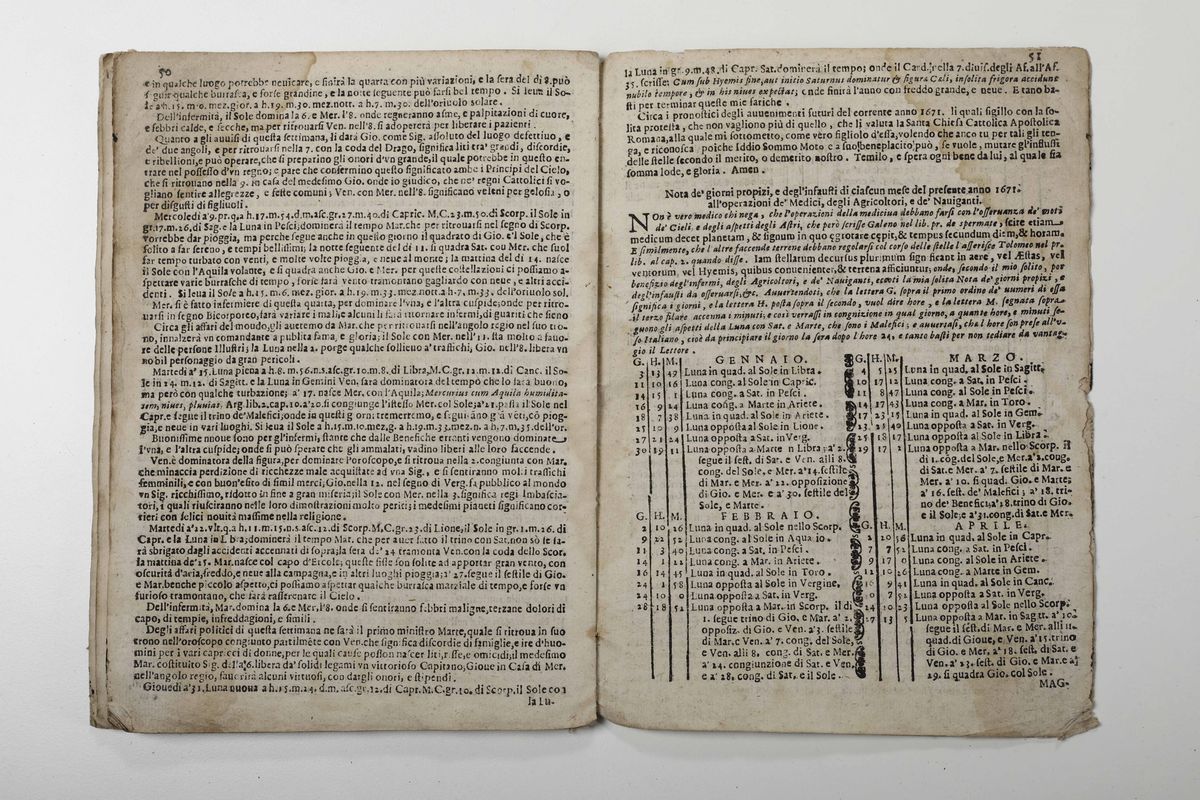 50
e in qualche luogo potrebbe nevicare, e finirà la quarta con più variazioni, e la sera del dì 8. può
seguir qualche burrasca, e forse grandine, e la notte seguente può farsi bel tempo. Si leua il So-
le a h. 15. m. 0. mez. gior. a h. 19. m. 30. mez. nott. a h. 7. m. 30. dell'oriuolo solare.
Dell'infermità, il Sole domina la 6. e Mer. l'8. onde regneranno asme, e palpitazioni di cuore,
e febbri calde, e secche, ma per ritrouarsi Ven. nell'8. si adopererà per liberare i pazienti.
Quanto a gli auuisi di questa settimana, li darà Gio. come Sig. assoluto del luogo desettiuo, e
de' due angoli, e per ritrouarsi nella 7. con la coda del Drago, significa liti tra' grandi, discordie,
e ribellioni, e può operare, che si preparino gli onori d'vn grande, il quale potrebbe in questo en-
trare nel possesso d'vn regno; e pare che confermino questo significato ambe i Principi del Cielo,
che si ritrouano nella 9. in casa del medesimo Gio. onde io giudico, che ne' regni Cattolici si vo-
gliano sentire allegrezze, e feste comuni; Ven. con Mer. nell'8. significano veleni per gelosia, o
per disgusti di figliuoli.
Mercoledì a' 9. pr. q. a h. 17. m. 54. d. m. asc. gr. 27. m. 40. di Capric. M. C. 23. m. 50. di Scorp. il Sole in
gr. 17. m. 26. di Sag. e la Luna in Pesci; dominerà il tempo Mar. che per ritrouarsi nel segno di Scorp.
vorrebbe dar pioggia, ma perche segue anche in questo giorno il quadrato di Gio. e'l Sole, che è
solito a far sereno, e tempi bellissimi; la notte seguente del dì 11. si quadra Sat. cou Mer. che suol
far tempo turbato con venti, e molte volte pioggia, e neue al monte; la mattina del dì 14. nasce
il Sole con l'Aquila volante, e si quadra anche Gio. e Mer. per queste costellazioni ci possiamo a-
spettare varie burrasche di tempo, e forse farà vento tramontano gagliardo con neue, e altri acci-
denti. Si leua il Sole a h. 15. m. 6. mez. gior. a h. 19. m. 33. mez. nott. a h. 7. m. 33. dell'oriuolo sol.
Mer. si è fatto infermiere di questa quarta, per dominare l'vna, e l'altra cuspide; onde per ritro-
uarsi in segno Bicorporeo, farà variare i mali, e alcuni li farà ritornare infermi, di guariti che sieno
Circa gli affari del mondo, gli auremo da Mar. che per ritrouarsi nell'angolo regio nel suo tro-
no, innalzerà vn comandante a publica fama, e gloria; il Sole con Mer. nell'11. sta molto a fauo-
re delle persone Illustri; la Luna nella 2. porge qualche sollieuo a' traffichi, Gio. nell'8. libera vn
nobil personaggio da gran pericoli.
Martedì a' 15. Luna piena a h. 8. m. 56. n. s. asc. gr. 10. m. 8. di Libra, M. C. gr. 12. m. 12. di Canc. il So-
le in 24. m. 12. di Sagitt. e la Luna in Gemini Ven. farà dominatora del tempo che lo farà buono,
ma però con qualche turbazione; a' 17. nasce Mer. con l'Aquila; Mercurius cum Aquila humidita-
tem, niues, pluuias. Arg. lib. 2. cap. 10. a' 20. si congiunge l'istesso Mer. col Sole; a' 21. passa il Sole nel
Capr. e segue il trino de' Malefici; onde in questi giorni temerremo, e seguirano già vēti, cō piog-
gia, e neue in varj luoghi. Si leua il Sole a h. 15. m. 10. mez. g. a h. 19. m. 33. mez. n. a h. 7. m. 35. dell'or.
Buonissime nuoue sono per gl'infermi, stante che dalle Benefiche erranti vengono dominate
l'vna, e l'altra cuspide; onde si può sperare che gli ammalati, vadino liberi alle loro faccende.
Ven. è dominatora della figura, per dominare l'oroscopo, e si ritroua nella 2. congiunta con Mar.
che minaccia perdizione di ricchezze male acquistate ad vna Sig., e si sentiranno mol. i traffichi
femminili, e con buon'esito di simil merci; Gio. nella 12. nel segno di Verg. fa pubblico al mondo
vn Sig. ricchissimo, ridotto in fine a gran miseria; il Sole con Mer. nella 3. significa regi Imbascia-
tori, i quali riusciranno nelle loro dimostrazioni molto periti; i medesimi pianeti significano cor-
rieri con felici nouità massime nella religione.
Martedì a' 22. vlt. q. a h. 11. m. 15. n. s. asc. 21. di Scorp. M. C. gr. 23. di Lione, il Sole in gr. 1. m. 26. di
Capr. e la Luna in Libra; dominerà il tempo Mar. che per auer fatto il trino con Sat. non sò se sa-
rà sbrigato dagli accidenti accennati di sopra; la sera de' 24. tramonta Ven. con la coda dello Scor.
la mattina de' 25. Mar. nasce col capo d'Ercole; queste fisse son solite ad apportar gran vento, con
oscurità d'aria, freddo, e neue alla campagna, e in altri luoghi pioggia; a' 27. segue il sestile di Gio.
e Mar. benche piccolo aspetto, ci possiamo aspettar qualche burrasca marziale di tempo, e forse vn
furioso tramontano, che farà rasserenare il Cielo.
Dell'infermità, Mar. domina la 6. e Mer. l'8. onde si sentiranno febbri maligne, terzane dolori di
capo, di tempie, infreddagioni, e simili.
Degli affari politici di questa settimana ne sarà il primo ministro Marte, quale si ritroua in suo
trono nell'oroscopo congiunto partilmēte con Ven. che significa discordie di famiglie, e ire d'huo-
mini per i vari capricci di donne, per le quali cause posson nascer liti, risse, e omicidi; il medesimo
Mar. costituito Sig. d. l'a's. libera da' solidi legami vn vittorioso Capitano, Gioue in Casa di Mer.
nell'angolo regio, fauorirà alcuni virtuosi, con dargli onori, e stipendi.
Giouedì a' 31. Luna nuoua a h. 15. m. 24. d. m. asc. gr. 12. di Capr. M. C. gr. 10. di Scorp. il Sole con
la Lu-
51
la Luna in gr. 9. m. 48. di Capr. Sat. dominerà il tempo; onde il Card. nella 7. diuis. degli Af. all'Af.
35. scrisse; Cum sub Hyemis fine, aut initio Saturnus dominatur & figura Cæli, insolita frigora accidunt
nubilo tempore, & in his niues expectat; onde finirà l'anno con freddo grande, e neue. E tano ba-
sti per terminar queste mie fariche.
Circa i pronostici degli auuenimenti futuri del corrente anno 1671. li quali sigillo con la so-
lita protesta, che non vagliono più di quello, che li valuta la Santa Chiesa Cattolica Apostolica
Romana, alla quale mi sottometto, come vero figliolo d'essa, volendo che anco tu per tali gli ten-
ga, e riconosca; poiche Iddio Sommo Moto e a suo beneplacito può, se vuole, mutare gl'influssi
delle stelle secondo il merito, o demerito nostro. Temilo, e spera ogni bene da lui, al quale sia
somma lode, e gloria. Amen.
Nota de' giorni propizi, e degl'infausti di ciascun mese del presente anno 1671.
all'operazioni de' Medici, degli Agricoltori, e de' Nauiganti.
NOn è vero medico chi nega, che l'operazioni della mediciua debbano farsi con l'osseruanza de' moti
de' Cieli, e degli aspetti degli Astri, che però scrisse Galeno nel lib. pr. de spermate, scite etiam
medicum decet planetam, & signum in quo ęgrotare cępit, & tempus secundum diem, & horam.
E similmente, che l'altre faccende terrene debbano regolarsi col corso delle stelle l'asserisce Tolomeo nel pr.
lib. al cap. 2. quando disse. Iam stellatum decursus plurimum significant in aere, vel Æstas, vel
ventorum, vel Hyemis, quibus conuenienter, & terrena afficiuntur; onde, secondo il mio solito, per
benefizio degl'infermi, degli Agricoltori, e de' Nauiganti, eccoti la mia solita Nota de' giorni propizi, e
degl'infausti da osseruarsi, &c. Auuertendoti, che la lettera G. sopra il primo ordine de' numeri di essa
significa i giorni, e la lettera H. posta sopra il secondo, vuol dire hore, e la lettera M. segnata sopra
il terzo filare accenna i minuti; e così verrassi in congnizione in qual giorno, a quante hore, e minuti se-
guono gli aspetti della Luna con Sat. e Marte, che sono i Malefici; e auuertasi, che l'hore son prese all'v-
so Italiano, cioè da principiare il giorno la sera dopo l'hore 24. e tanto basti per non tediare da vantag-
gio il Lettore.
G. H. M. GENNAIO.
3 13 47 Luna in quad. al Sole in Libra.
11 10 16 Luna cong. al Sole in Capric.
14 1 15 Luna cong. a Sat. in Pesci.
16 9 14 Luna cong. a Marte in Ariete.
18 7 38 Luna in quad. al Sole in Ariete.
25 10 9 Luna opposta al Sole in Lione.
27 21 24 Luna opposta a Sat. in Verg.
30 19 11 Luna opposta a Marte in Libra; a' 2.
segue il sest. di Sat. e Ven. alli 8.
cong. del Sole, e Mer. a' 14. sestile
di Mar. e Mer. a' 22. opposizione
di Gio. e Mer. e a' 30. sestile del
Sole, e Marte.
G. H. M. FEBBRAIO.
2 10 26 Luna in quad. al Sole nello Scorp.
9 22 52 Luna cong. al Sole in Aquario.
11 3 40 Luna cong. a Sat. in Pesci.
14 1 22 Luna cong. a Mar. in Ariete.
16 14 45 Luna in quad. al Sole in Toro.
24 1 58 Luna opposta al Sole in Vergine.
24 10 0 Luna opposta a Sat. in Verg.
28 18 52 Luna opposta a Mar. in Scorp. il dì
1. segue trino di Gio. e Mar. a' 2.
opposiz. di Gio. e Ven. a' 3. sestile
di Mar. e Ven. a' 7. cong. del Sole,
e Ven. alli 8. cong. di Sat. e Mer.
a' 24. congiunzione di Sat. e Ven.
e a' 28. cong. di Sat. e il Sole.
G. H. M. MARZO.
4 5 25 Luna in quad. al Sole in Sagitt.
10 17 12 Luna cong. a Sat. in Pesci.
11 8 47 Luna cong. al Sole in Pesci.
14 17 43 Luna cong. a Mar. in Toro.
17 23 15 Luna in quad. al Sole in Gem.
23 21 43 Luna opposta a Sat. in Verg.
25 18 17 Luna opposta al Sole in Libra.
29 17 2 Luna opposta a Mar. nello Scorp. il
dì 1. cog. del Sole, e Mer. a' 2. cong.
di Sat. e Mer. a' 7. sestile di Mar. e
Mer. a' 10. si quad. Gio. e Marte;
a' 16. sest. de' Malefici; a' 18. tri-
no de' Benefici; a' 28. trino di Gio.
e il Sole; e a' 31. cong. di Sat. e Mer.
G. H. M. APRILE.
2 20 56 Luna in quad. al Sole in Capr.
7 7 52 Luna cong. a Sat. in Pesci.
9 17 0 Luna cong. al Sole in Ariete.
12 10 26 Luna cong. a Mar. in Gem.
16 9 41 Luna in quad. al Sole in Canc.
20 7 2 Luna opposta a Sat. in Verg.
24 10 23 Luna opposta al Sole nello Scorp.
27 13 5 Luna opposta a Mar. in Sagitt. a' 10.
segue il sest. di Mar. e Mer. alli 11.
quad. di Gioue, e Ven. a' 15. trino
di Gio. e Mer. a' 18. sest. di Sat. e
Ven. a' 23. sest. di Gio. e Mar. e a'
29. si quadra Gio. col Sole.
MAG-